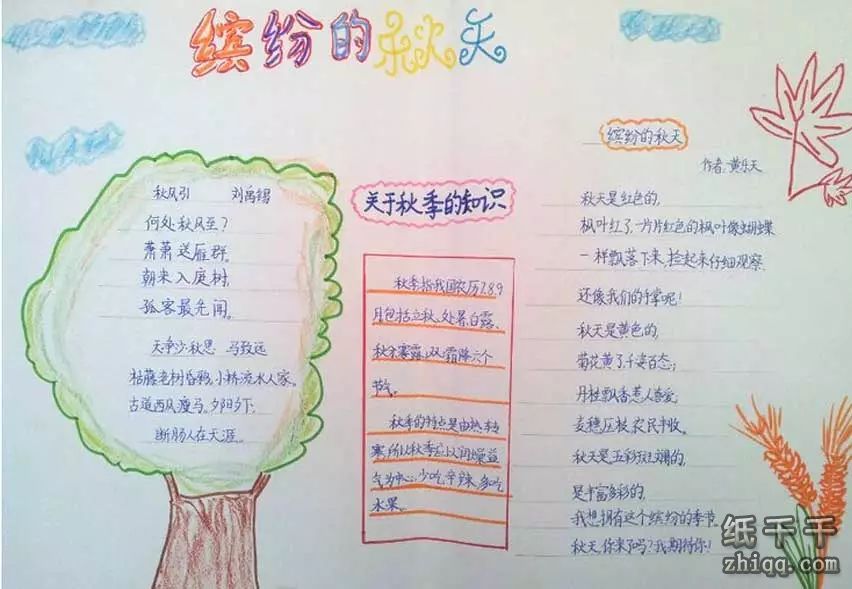 缤纷的秋天
秋风引 刘禹锡
何处秋风至?
萧萧送雁群。
朝来入庭树,
孤客最先闻。
天净沙·秋思 马致远
枯藤老树昏鸦,小桥流水人家。
古道西风瘦马。夕阳夕下,
断肠人在天涯。
关于秋季的知识
秋季指我国农历7.8.9
月包括立秋、处暑、白露、
秋分寒露,霜降六个
节气。
秋季的特点是由热转
寒,所以秋季应以润燥益
气为中心,少吃辛辣,多吃
水果。
缤纷的秋天
作者:黄乐天
秋天是红色的,
枫叶红了,一片片红色的枫叶像蝴蝶
一样飘落下来,捡起来仔细观察.
还像我们的手掌呢!
秋天是黄色的,
菊花黄了,千姿百态;
丹桂飘香惹人喜爱;
麦穗压枝,农民丰收。
秋天是五彩斑斓的,
是丰富多彩的,
我想拥有这个缤纷的季节.
秋天,你来了吗?我期待你!
纸千千
zhiqq.com